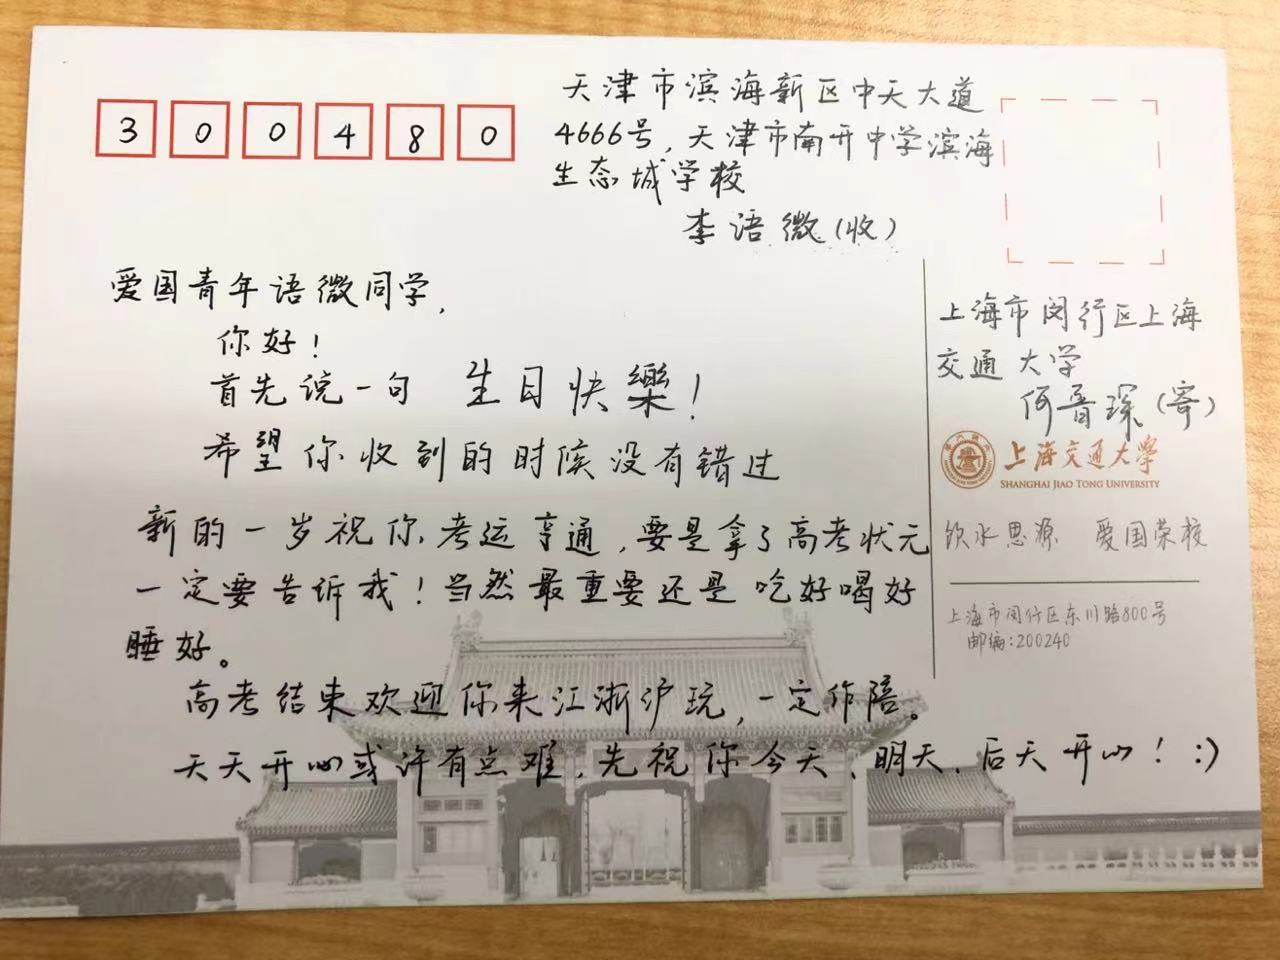 300480
天津市滨海新区中天大道
4666号，天津市南开中学滨海
生态城学校
李语微（收）
爱国青年语微同学，
你好！
首先说一句 生日快樂！
希望你收到的时候没有错过
新的一岁祝你考运亨通，要是拿了高考状元
一定要告诉我！当然最重要还是吃好喝好
睡好。
高考结束欢迎你来江浙沪玩，一定作陪。
天天开心或许有点难，先祝你今天、明天、后天开心！:)
上海市闵行区上海
交通大学
何晋琛（寄）
上海交通大学
SHANGHAI JIAO TONG UNIVERSITY
饮水思源 爱国荣校
上海市闵行区东川路800号
邮编：200240